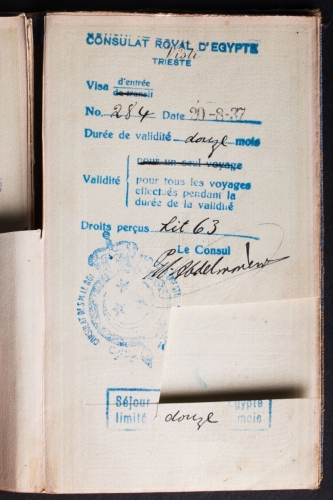 CONSULAT ROYAL D'EGYPTE
TRIESTE
Visa d'entrée
de transit
No. 284 Date 20-8-37
Durée de validité douze mois
pour un seul voyage
Validité pour tous les voyages
effectués pendant la
durée de la validité
Droits perçus Lit 63
Le Consul
Séjour Egypte
limité douze mois